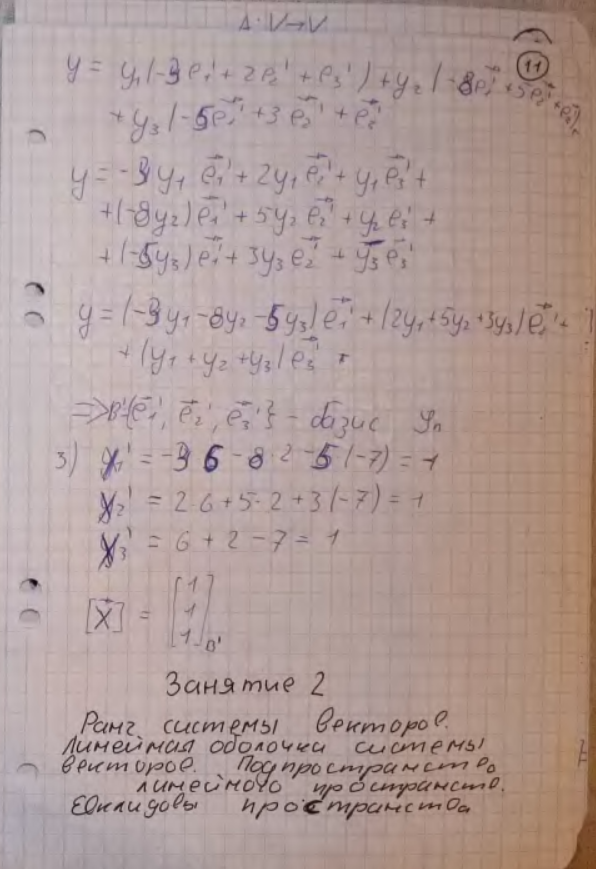 A: V → V
11
y = y₁(-3e₁' + 2e₂' + e₃') + y₂(-8e₁' + 5e₂' + e₃')
+ y₃(-5e₁' + 3e₂' + e₃'
y = -3y₁ e₁' + 2y₁ e₂' + y₁ e₃' +
+(-8y₂) e₁' + 5y₂ e₂' + y₂ e₃' +
+(-5y₃) e₁' + 3y₃ e₂' + y₃ e₃'
y = (-3y₁ - 8y₂ - 5y₃) e₁' + (2y₁ + 5y₂ + 3y₃) e₂' +
+ (y₁ + y₂ + y₃) e₃'
⇒ B'{e₁', e₂', e₃'} - базис
3) x₁' = -3 6 - 8·2 - 5(-7) = 1
x₂' = 2·6 + 5·2 + 3(-7) = 1
x₃' = 6 + 2 - 7 = 1
[x] = [1 1 1]B'
Занятие 2
Ранг системы векторов.
Линейная оболочка системы
векторов. Подпространство
линейного пространств.
Евклидовы пространства